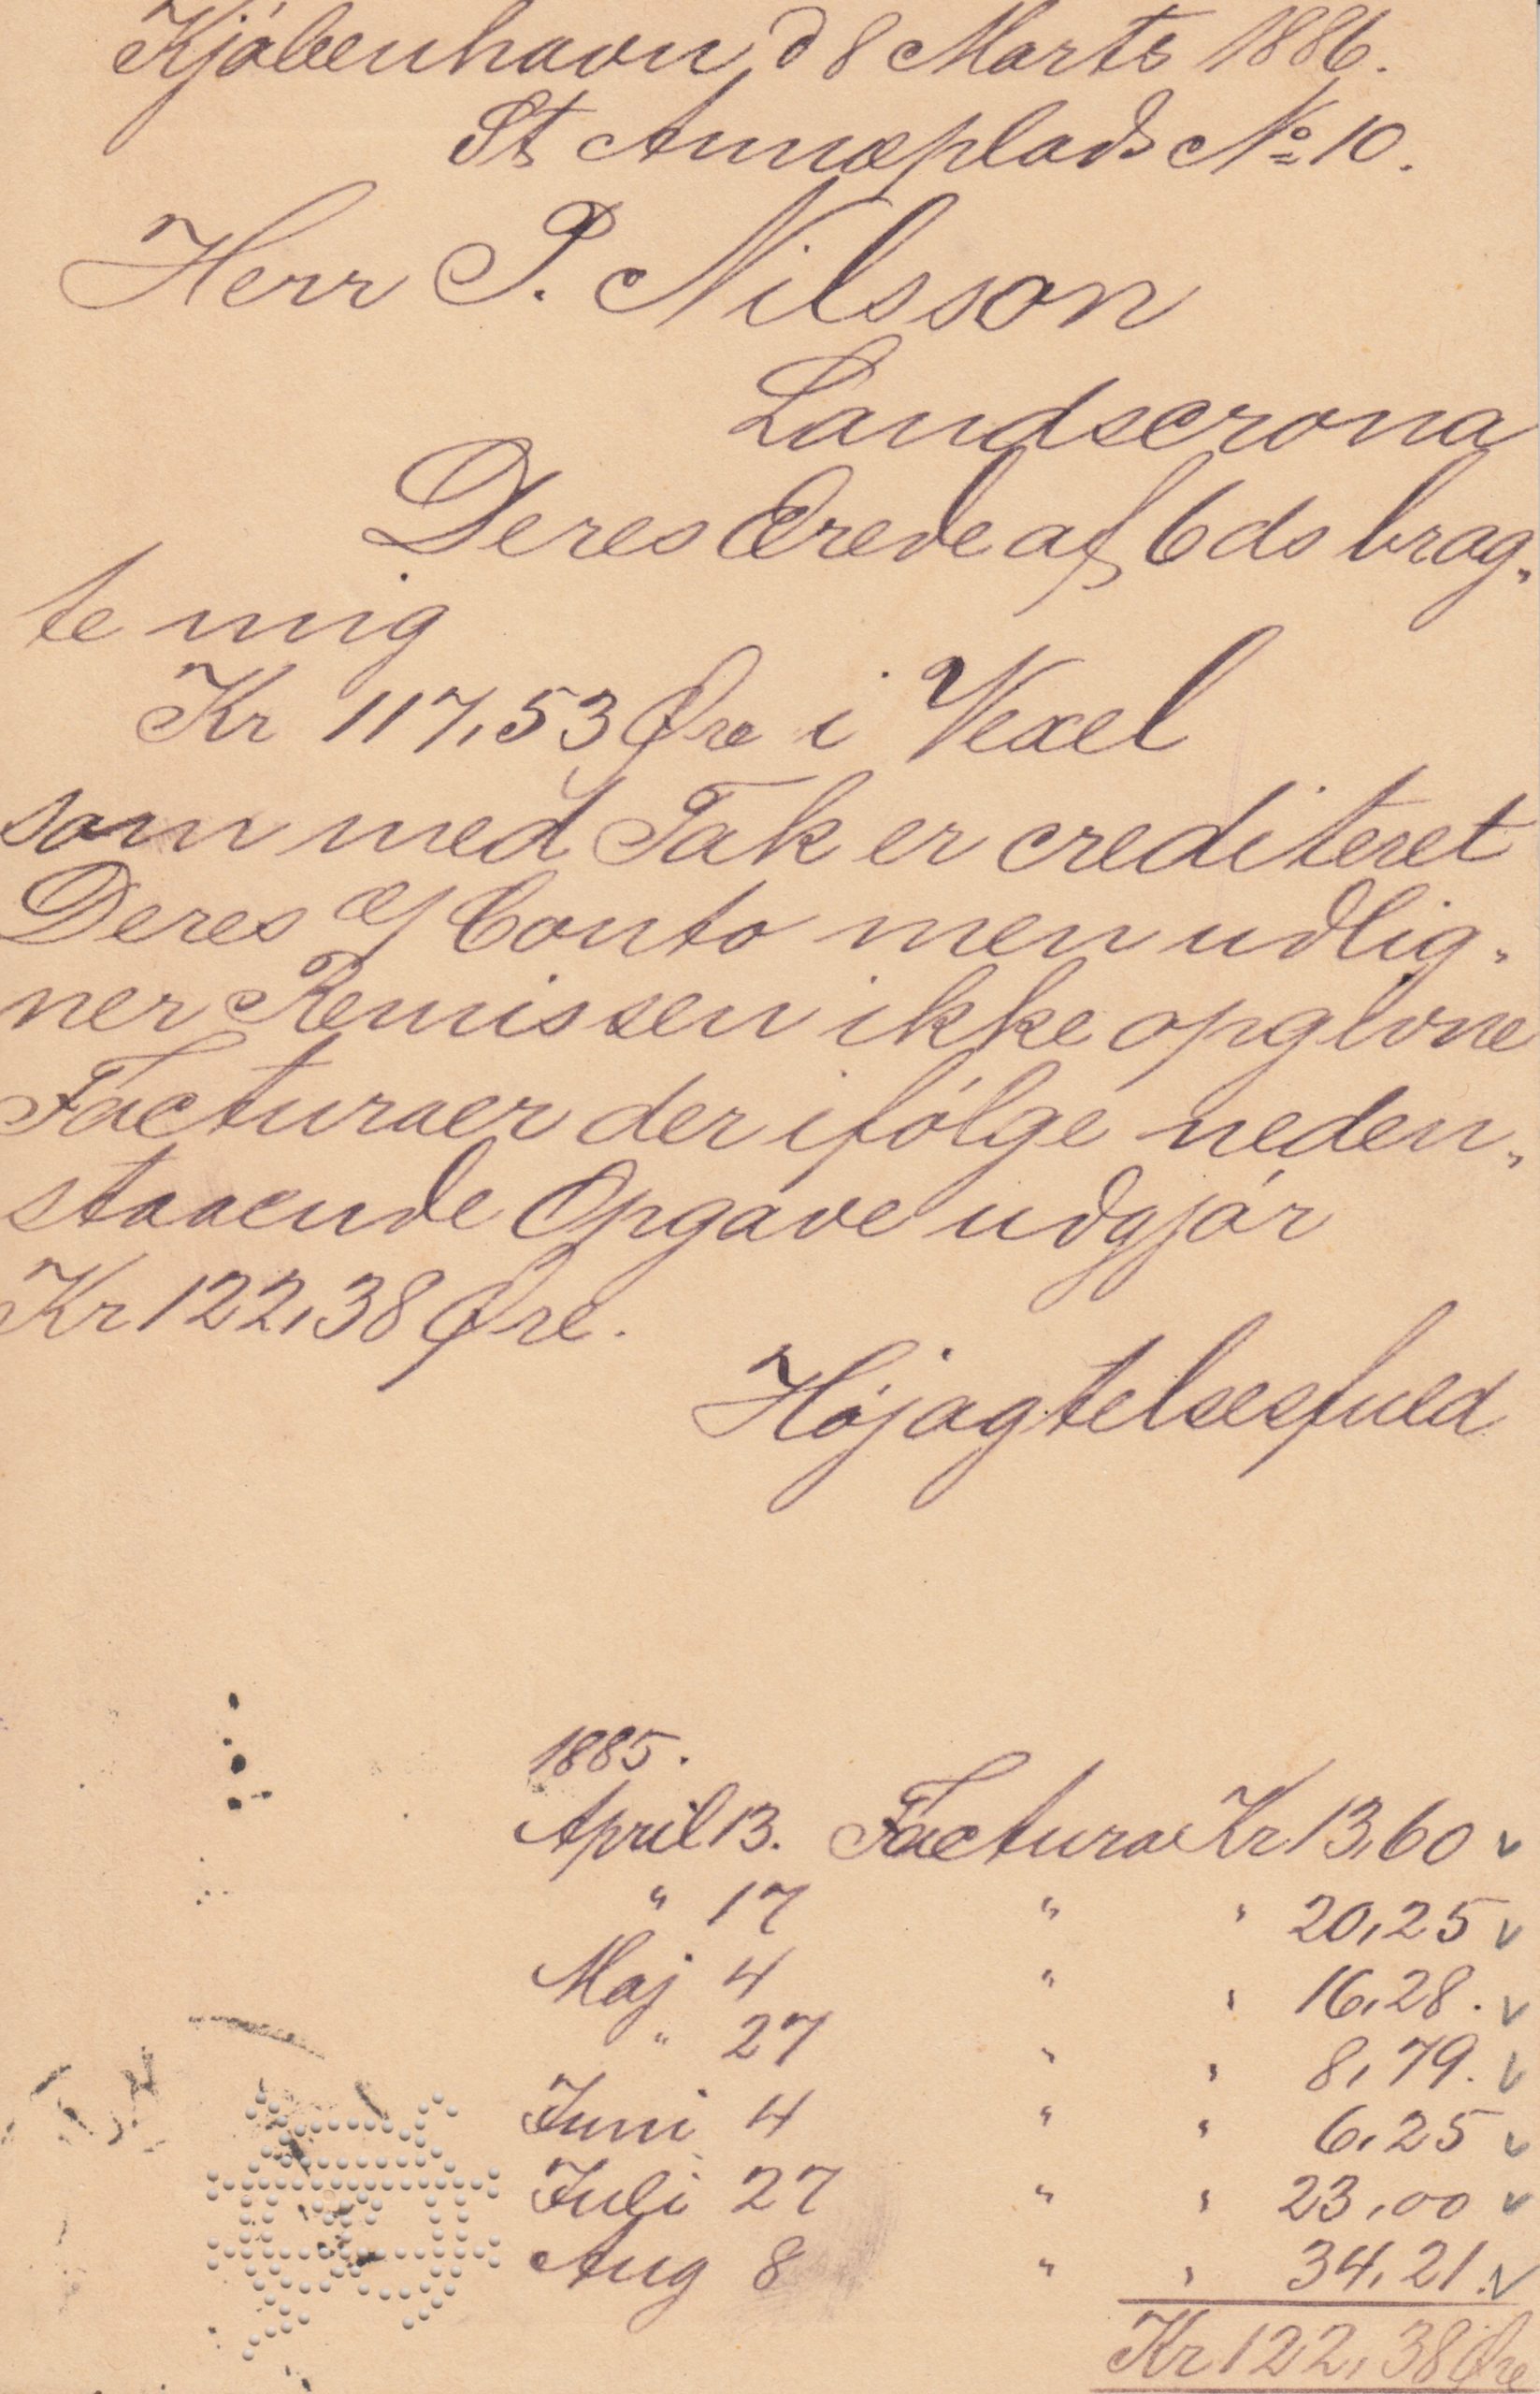 Kjöbenhavn d 8 Marts 1886.
St Annæplads No 10.
Herr P. Nilsson
Landscrona
Deres Ærede af 6 ds brag„
te mig
Kr 117,53 Øre i Vexel
som med Tak er crediteret
Deres Conto men udlig„
ner Remissen ikke opgivne
Facturaer der ifölge neden„
staaende Opgave udgjör
Kr 122,38 Øre.
Höjagtelsesfuld
1885.
April 13. Factura Kr 13,60 v
" 17 " " 20,25 v
Maj 4 " " 16,28. v
" 27 " " 8,79. v
Juni 4 " " 6,25 v
Juli 27 " " 23,00 v
Aug 8 " " 34,21. v
Kr 122,38 Øre